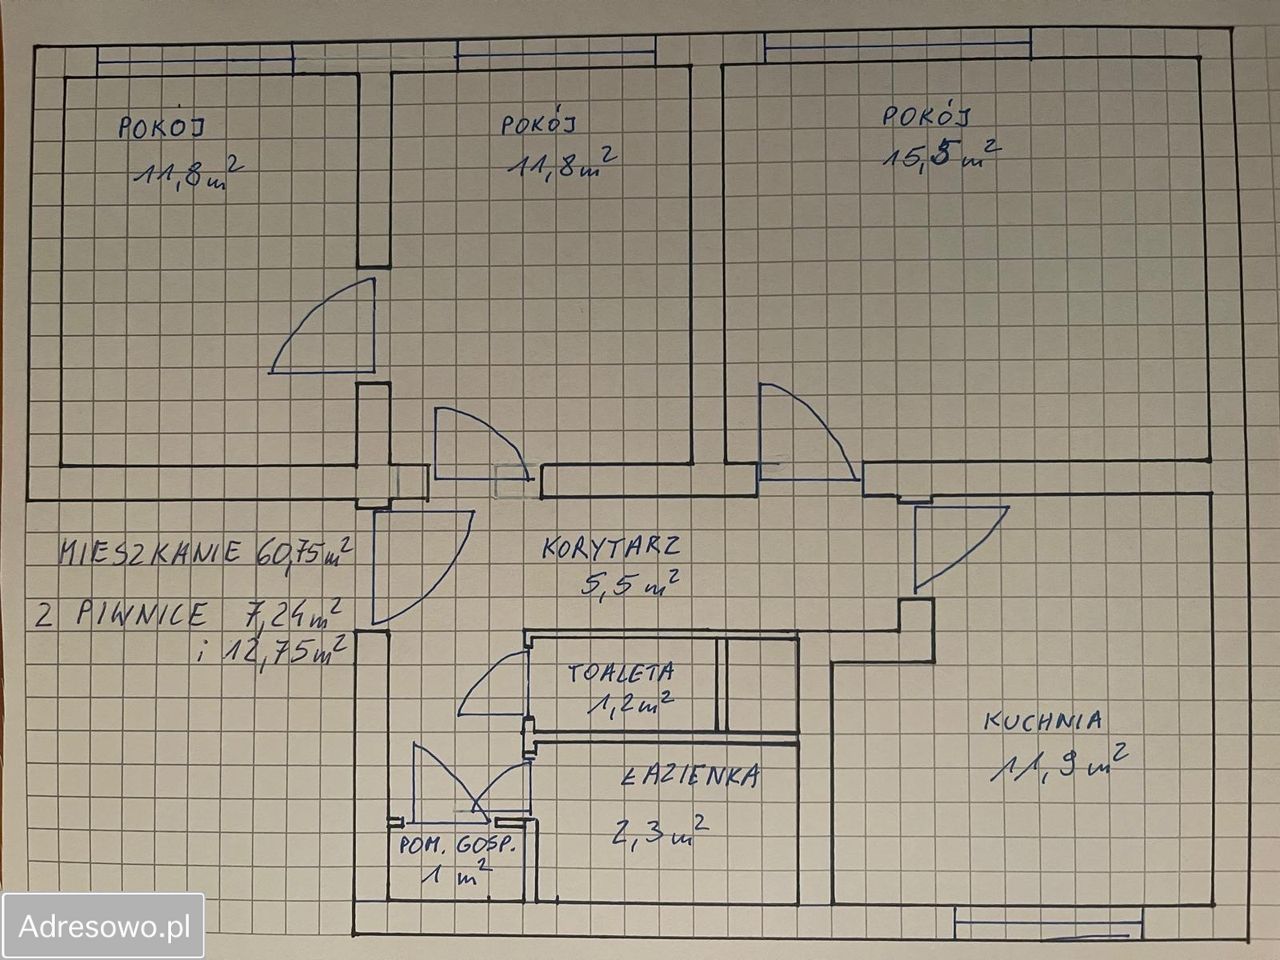 POKÓJ
11,8 m²
POKÓJ
11,8 m²
POKÓJ
15,5 m²
MIESZKANIE 60,75 m²
2 PIWNICE 7,24 m²
i 12,75 m²
KORYTARZ
5,5 m²
TOALETA
1,2 m²
KUCHNIA
11,9 m²
ŁAZIENKA
2,3 m²
POM. GOSP.
1 m²
Adresowo.pl